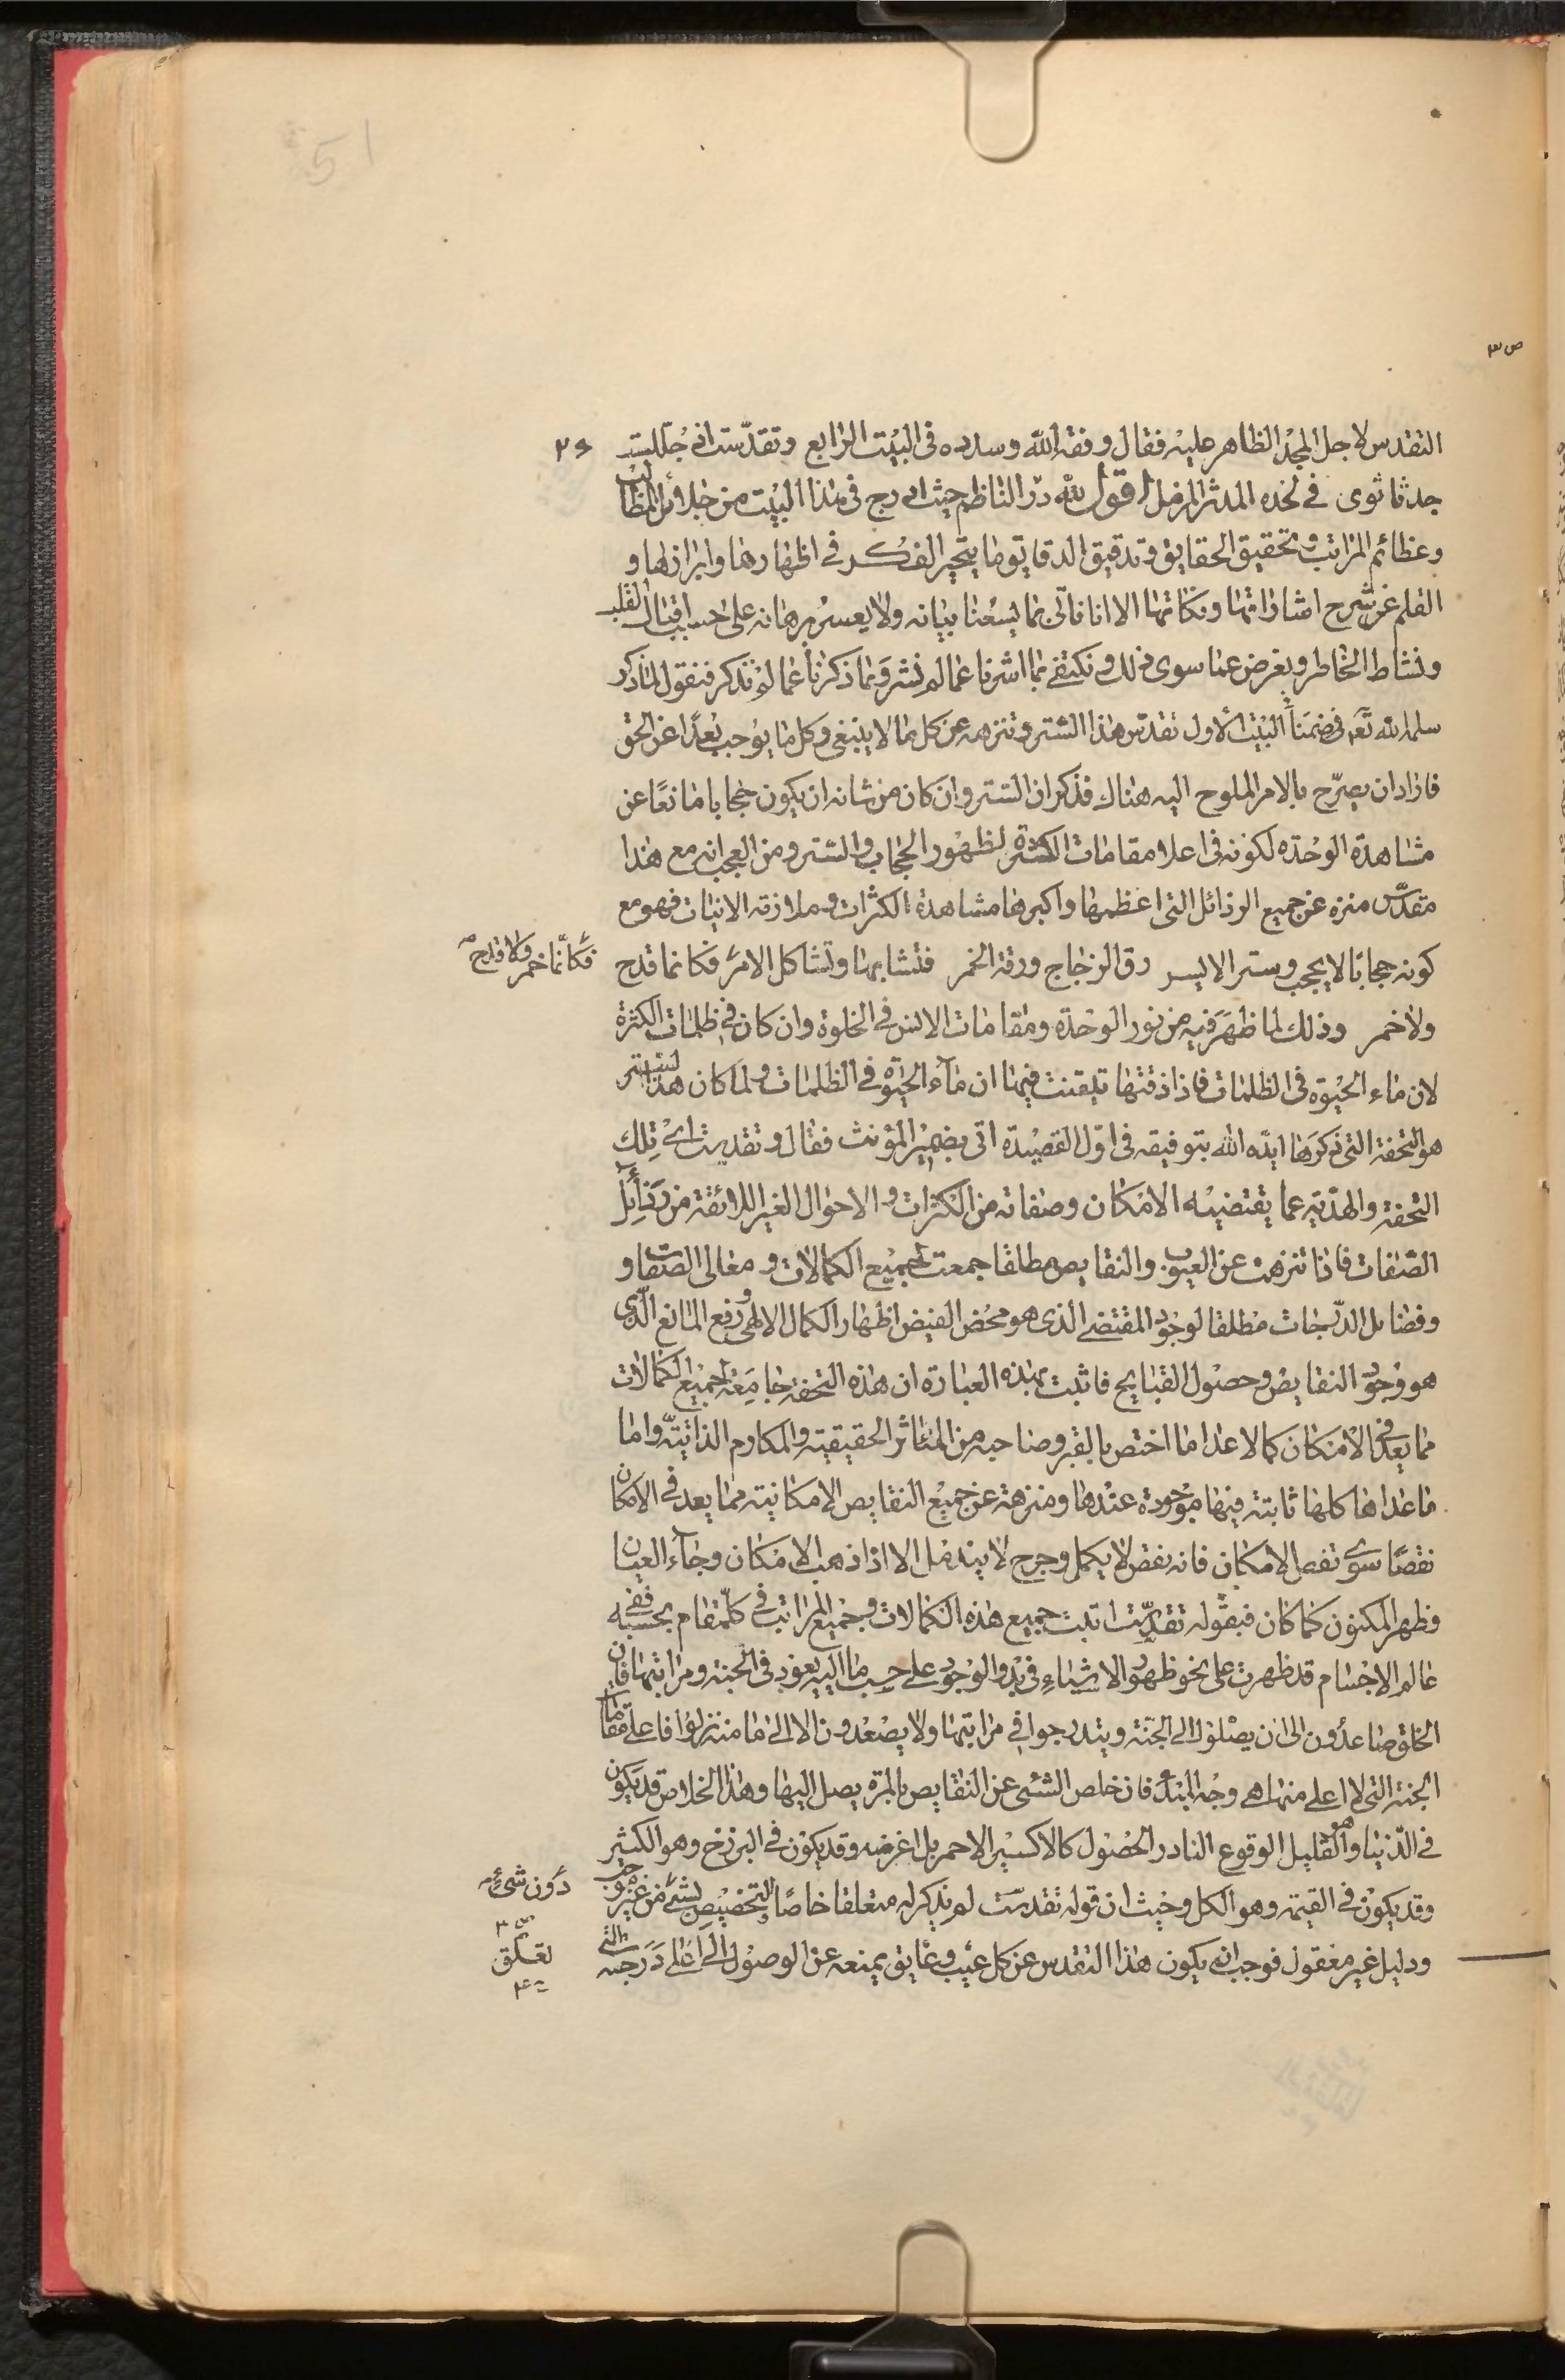 ص ٣
التقدس لاجل المجد الظاهر عليه فقال وفقه الله وسدده فى البيت الرابع وتقدست اذ جللت
جدثا ثوى فى لحده المدثر المزمل اقول لله در الناظم حيث ادرج فى هذا البيت من جلائل المطالب
وعظائم المراتب وتحقيق الحقايق وتدقيق الدقايق ما يتحير الفكر فى اظهارها وابرازها و
القلم عن شرح اشاراتها ونكاتها الا انا نأتى بما يسعنا بيانه ولا يعسر برهانه على حسب اقبال القلب
ونشاط الخاطر ونعرض عما سوى ذلك ونكتفى بما اشرنا عما لم نشر وبما ذكرنا عما لم نذكر فنقول لما ذكر
سلمه الله تعالى ضمنا فى البيت الاول تقدس هذا الستر وتنزهه عن كل ما لا ينبغى وكل ما يوجب بعدا عن الحق
فاراد ان يصرح بالامر الملوح اليه هناك فذكر ان الستر وان كان من شانه ان يكون حجابا مانعا عن
مشاهدة الوحدة لكونه فى اعلا مقامات الكثرة لظهور الحجاب والستر ومن العجب انه مع هذا
مقدس منزه عن جميع الرذائل التى اعظمها واكبرها مشاهدة الكثرات وملازقة الانيات فهو مع
كونه حجابا لا يحجب وستر الا يستر رق الزجاج ورقة الخمر فتشابها وتشاكل الامر فكانما قدح
فكانما خمر ولا قدح
ولا خمر وذلك لما ظهر فيه من نور الوحدة ومقامات الانس فى الخلوة وان كان فى ظلمات الكثرة
لان ماء الحيوة فى الظلمات فاذا ذقتها تيقنت فيها ان ماء الحيوة فى الظلمات ولما كان هذا الستر
هو التحفة التى ذكرها ايده الله بتوفيقه فى اول القصيدة اتى بضمير المؤنث فقال وتقدست اى تلك
التحفة والهدية عما يقتضيه الامكان وصفاته من الكثرات والاحوال الغير اللائقة من رذائل
الصفات فاذا تنزهت عن العيوب والنقايص مطلقا جمعت لجميع الكمالات ومعالى الصفات و
وفضايل الدرجات مطلقا لوجود المقتضى الذى هو محض الفيض اظهار الكمال الالهى ورفع المانع الذى
هو وجود النقايص وحصول القبايح فاثبت بهذه العبارة ان هذه التحفة جامعة لجميع الكمالات
مما يعد فى الامكان كمالا عدا ما اختص بالقبر وصاحبه من المآثر الحقيقية والمكارم الذاتية واما
ما عداها كلها ثابتة فيها موجودة عندها ومنزهة عن جميع النقايص الامكانية مما يعد فى الامكان
نقصا سوى نقص الامكان فانه نقص لا يكمل وجرح لا يندمل الا اذا ذهب الامكان وجاء العيان
وظهر المكنون كما كان فبقوله تقدست اثبت جميع هذه الكمالات وجميع المراتب فى كل مقام بحسبه ففى
عالم الاجسام قد ظهرت على نحو ظهور الاشياء فى بدو الوجود على حسب ما اليه يعود فى الجنة ومراتبها فان
الخلق صاعدون الى ان يصلوا الى الجنة ويتدرجوا فى مراتبها ولا يصعدون الا الى ما منه نزلوا فاعلى مقامات
الجنة التى لا اعلى منها هى وجه المبدء فان خلص الشئ عن النقايص بالمرة يصل اليها وهذا الخلاص قد يكون
فى الدنيا وهو القليل الوقوع النادر الحصول كالاكسير الاحمر بل اعز منه وقد يكون فى البرزخ وهو الكثير
وقد يكون فى القيمة وهو الكل وحيث ان قوله تقدست لم يذكر له متعلقا خاصا والتخصيص بشئ من غير موجب
دون شئ
ودليل غير معقول فوجب ان يكون هذا التقدس عن كل عيب وعايق يمنعه عن الوصول الى اعلى درجته التى
تعلق